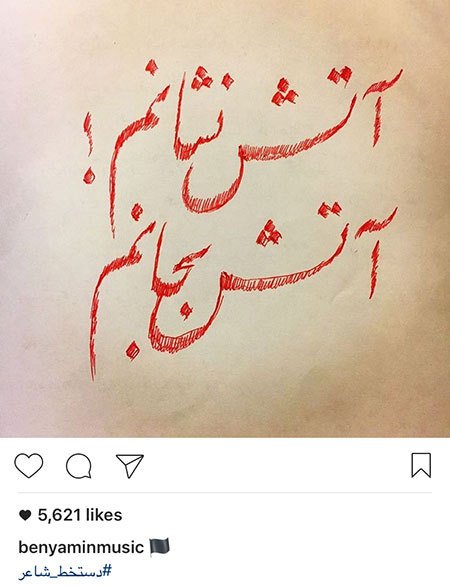 آتش نشانم!
آتش بجانم
5,621 likes
benyaminmusic 🏴
#دستخط_شاعر